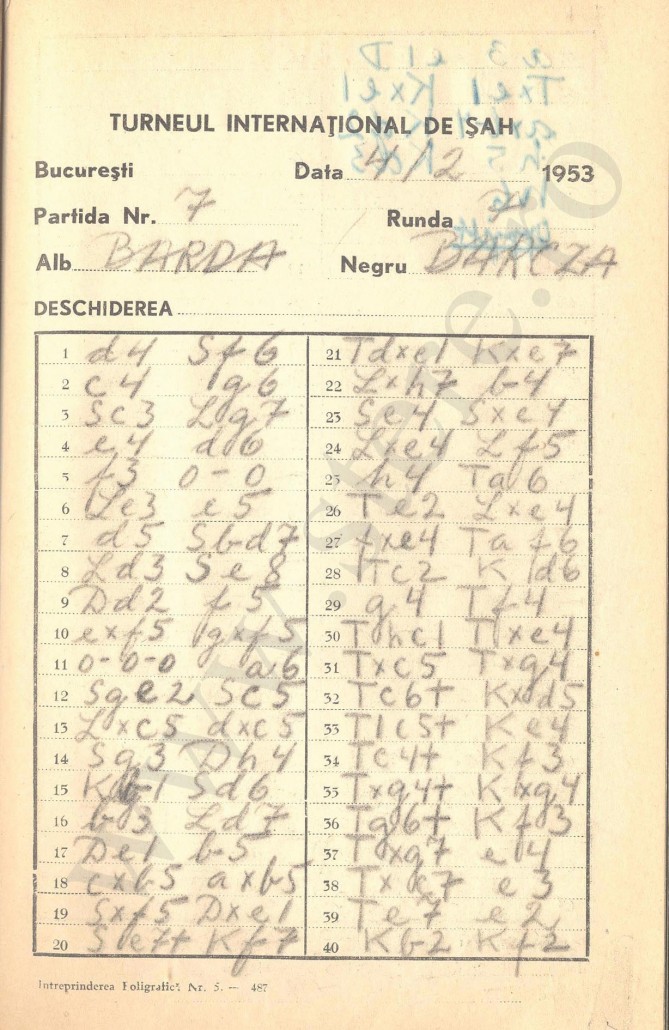 a3 e1D
Txe1 Kxe1
TURNEUL INTERNAŢIONAL DE ŞAH
Bucureşti Data 4/2 1953
Partida Nr. 7 Runda 7
Alb BARDA Negru BARCZA
DESCHIDEREA
1 d4 Sf6
2 c4 g6
3 Sc3 Lg7
4 e4 d6
5 f3 0-0
6 Le3 e5
7 d5 Sbd7
8 Ld3 Se8
9 Dd2 f5
10 exf5 gxf5
11 0-0-0 a6
12 Sge2 Sc5
13 Lxc5 dxc5
14 Sg3 Dh4
15 Kb1 Sd6
16 b3 Ld7
17 De1 b5
18 cxb5 axb5
19 Sxf5 Dxe1
20 Se7+ Kf7
21 Tdxe1 Kxe7
22 Lxh7 b4
23 Se4 Sxe4
24 Lxe4 Lf5
25 h4 Ta6
26 Te2 Lxe4
27 fxe4 Taf6
28 Tc2 Kd6
29 g4 Tf4
30 Thc1 Txe4
31 Txc5 Txg4
32 Tc6+ Kxd5
33 T1c5+ Ke4
34 Tc4+ Kf3
35 Txg4+ Kxg4
36 Tg6+ Kf3
37 Txg7 e4
38 Txc7 e3
39 Te7 e2
40 Kb2 Kf2
Intreprinderea Poligrafică Nr. 5. — 487